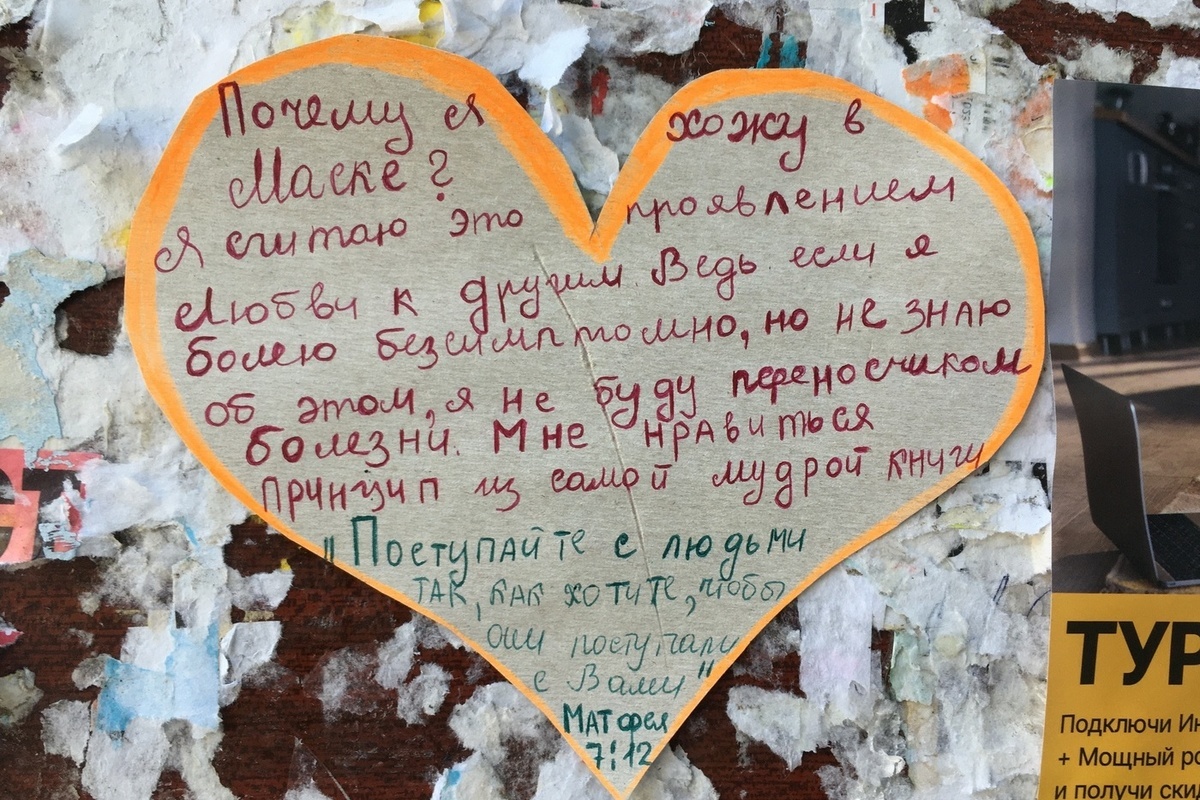 Почему я хожу в
Маске?
Я считаю это проявлением
Любви к другим. Ведь если я
болею безсимптомно, но не знаю
об этом, я не буду переносчиком
болезни. Мне нравиться
принцип из самой мудрой книги
"Поступайте с людьми
так, как хотите, чтобы
они поступали
с Вами"
Матфея
7:12
ТУР
Подключи Ин
+ Мощный ро
и получи ски